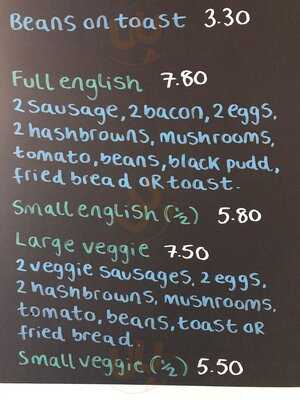 Beans on toast 3.30
Full english 7.80
2 sausage, 2 bacon, 2 eggs,
2 hashbrowns, mushrooms,
tomato, beans, black pudd,
fried bread OR toast.
Small english (½) 5.80
Large veggie 7.50
2 veggie sausages, 2 eggs,
2 hashbrowns, mushrooms,
tomato, beans, toast OR
fried bread.
Small veggie (½) 5.50